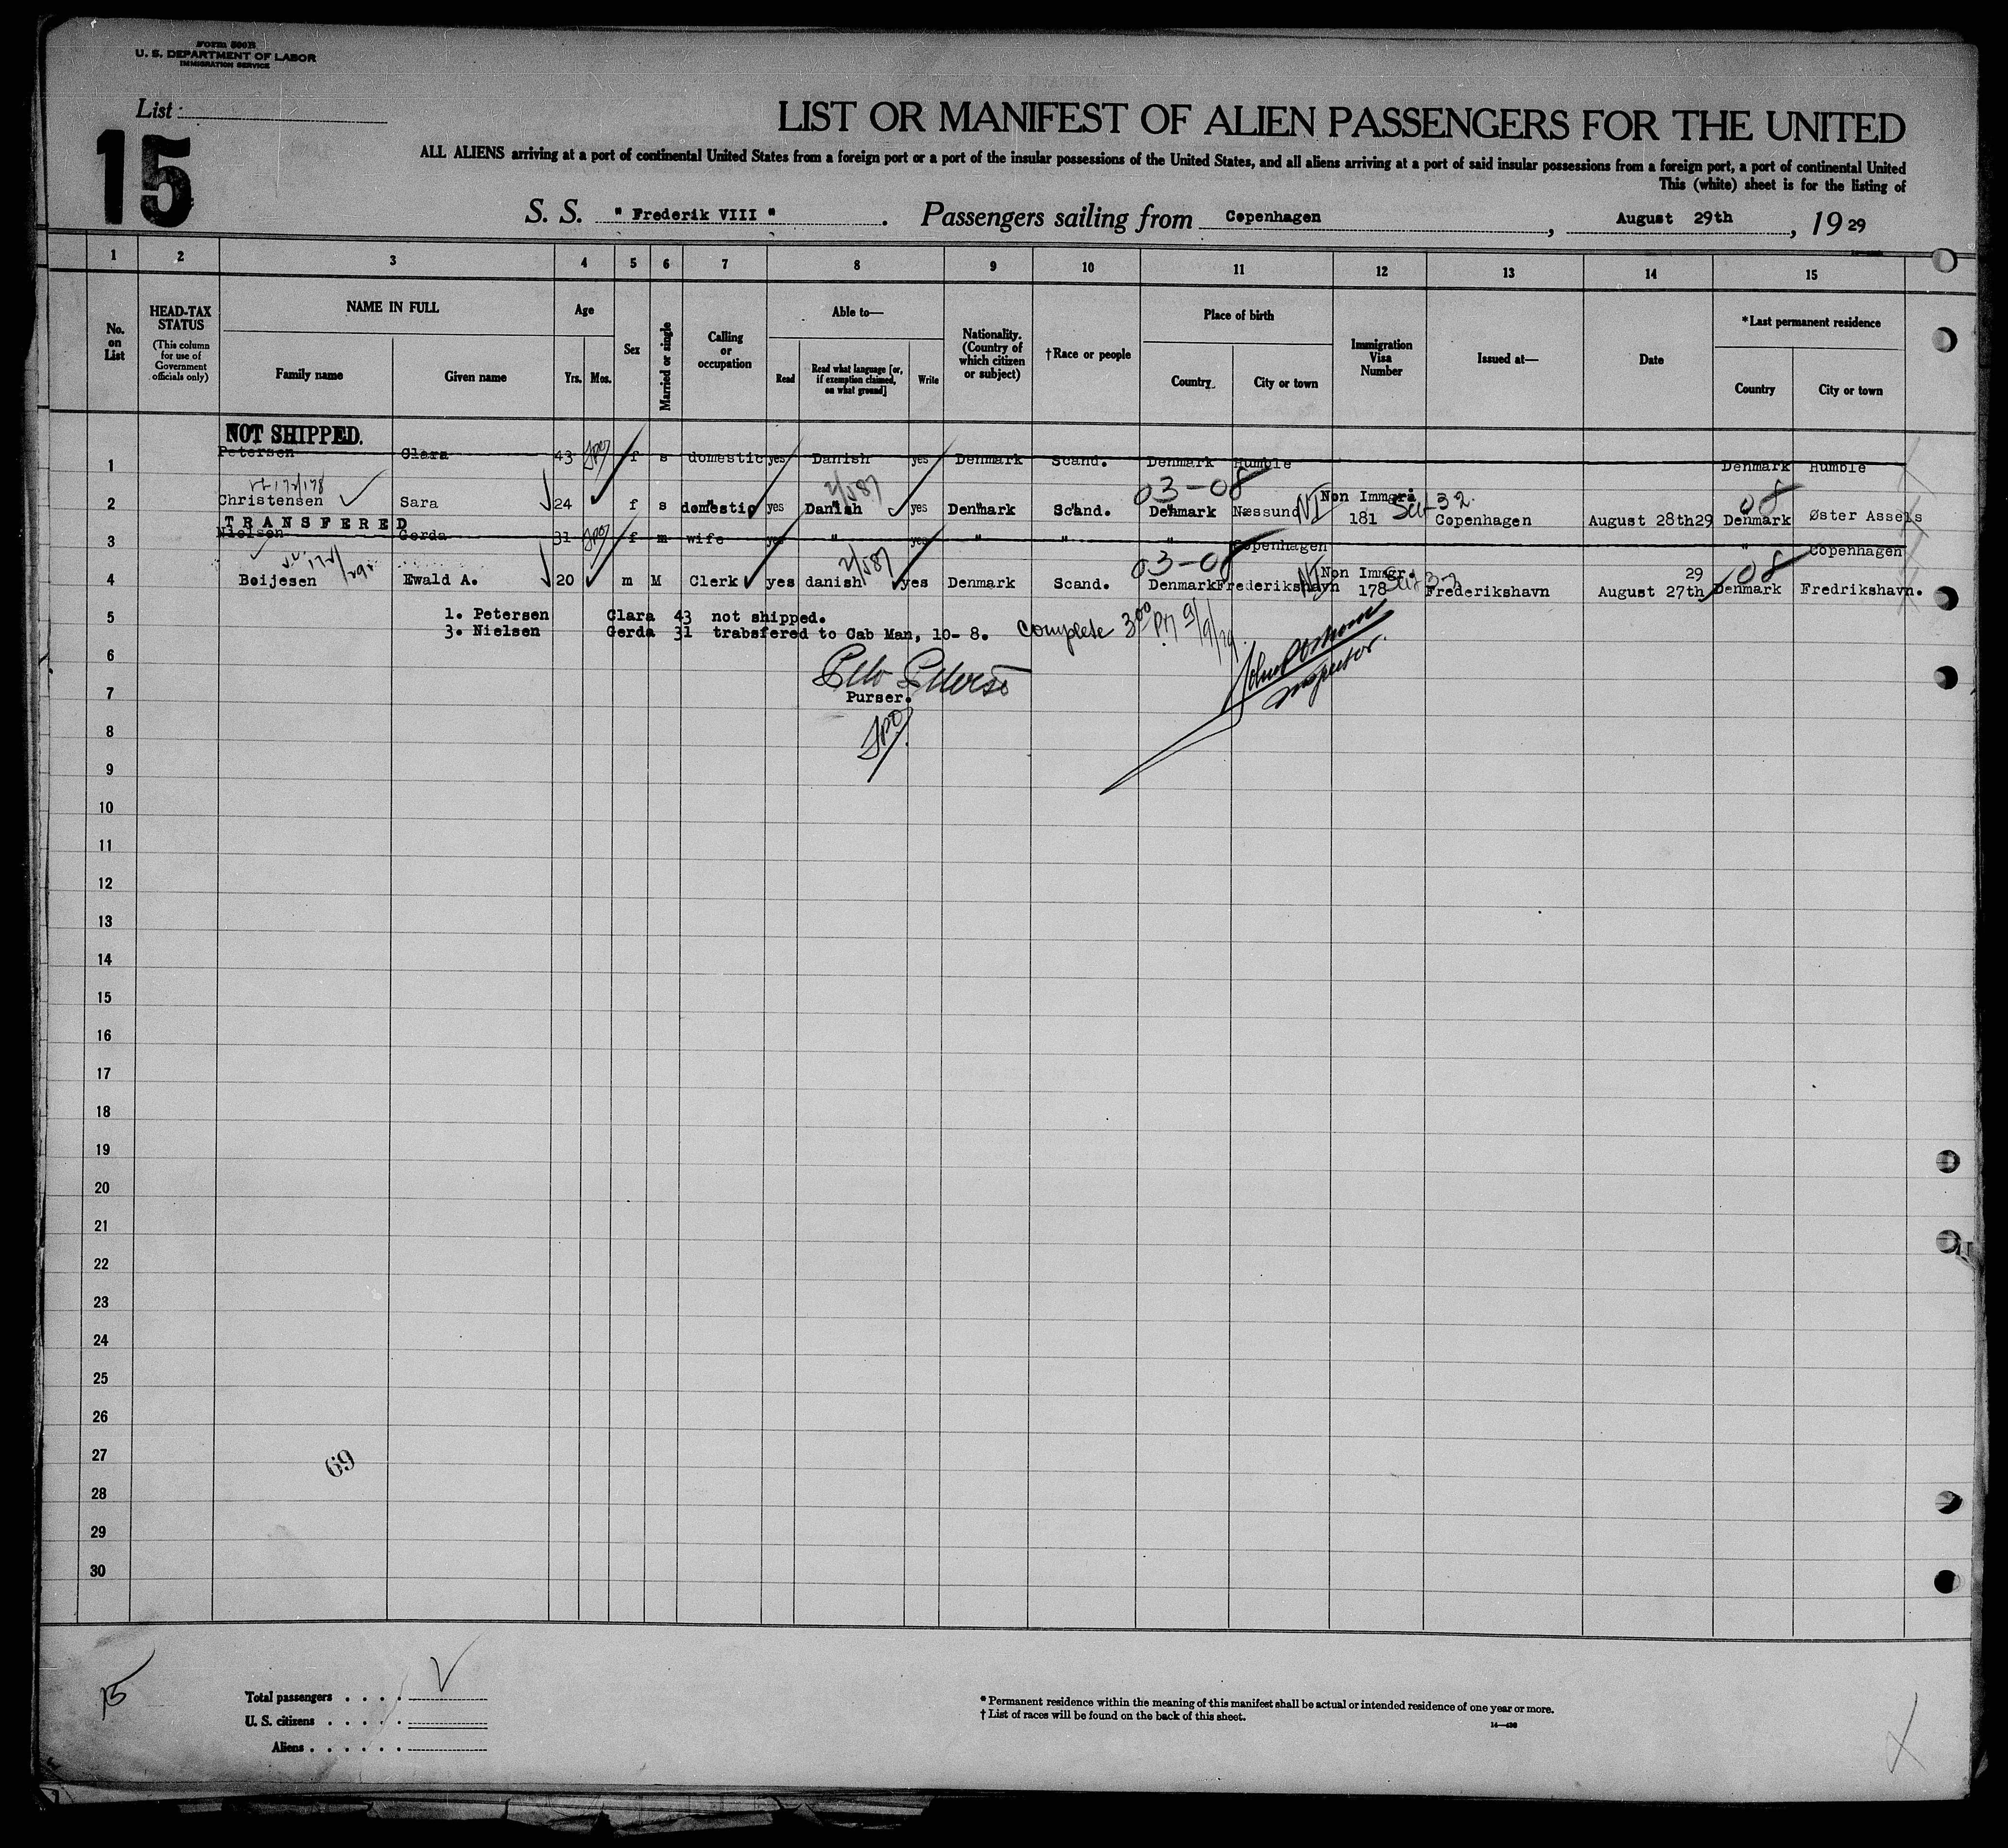 Form 500B
U. S. DEPARTMENT OF LABOR
IMMIGRATION SERVICE
List
15
LIST OR MANIFEST OF ALIEN PASSENGERS FOR THE UNITED
ALL ALIENS arriving at a port of continental United States from a foreign port or a port of the insular possessions of the United States, and all aliens arriving at a port of said insular possessions from a foreign port, a port of continental United
This (white) sheet is for the listing of
S. S. " Frederik VIII " . Passengers sailing from Copenhagen , August 29th , 1929
1 2 3 4 5 6 7 8 9 10 11 12 13 14 15
No. on List
HEAD-TAX STATUS
(This column for use of Government officials only)
NAME IN FULL
Family name Given name
Age
Yrs. Mos.
Sex
Married or single
Calling or occupation
Able to—
Read
Read what language [or, if exemption claimed, on what ground]
Write
Nationality. (Country of which citizen or subject)
†Race or people
Place of birth
Country. City or town
Immigration Visa Number
Issued at—
Date
*Last permanent residence
Country City or town
NOT SHIPPED.
1 Petersen Clara 43 f s domestic yes Danish yes Denmark Scand. Denmark Humble Denmark Humble
03-08
2 Christensen Sara 24 f s domestic yes Danish yes Denmark Scand. Denmark Næssund NI Non Immgra 181 Copenhagen August 28th29 08 Denmark Øster Assels
TRANSFERED
3 Nielsen Gerda 31 f m wife yes " yes " " " Copenhagen " Copenhagen
03-08
4 Boijesen Ewald A. 20 m M Clerk yes danish yes Denmark Scand. Denmark Frederikshavn NI Non Immgr. 178 Frederikshavn August 27th 29 08 Denmark Fredrikshavn.
5
1. Petersen Clara 43 not shipped.
3. Nielsen Gerda 31 trabsfered to Cab Man, 10- 8. Complete 3 00 PM 9/9/29
6
Inspector.
7
Purser.
8
9
10
11
12
13
14
15
16
17
18
19
20
21
22
23
24
25
26
27
69
28
29
30
15
Total passengers . . . .
U. S. citizens . . . . .
Aliens . . . . . .
* Permanent residence within the meaning of this manifest shall be actual or intended residence of one year or more.
† List of races will be found on the back of this sheet.